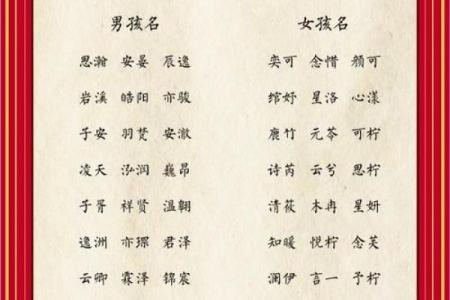 男孩名 女孩名
思瀚 安晏 辰逸 奕可 念惜 颜可
岩溪 皓阳 亦骏 绾妤 星洛 心漾
子安 羽焚 安澈 鹿竹 元苓 可柠
凌天 泓润 巍昂 诗芮 云兮 思柠
子胥 祥贤 温翱 清筱 木冉 星妍
逸洲 亦琛 君泽 知暖 悦柠 念芙
云卿 霖泽 锦宸 澜伊 言一 予柠